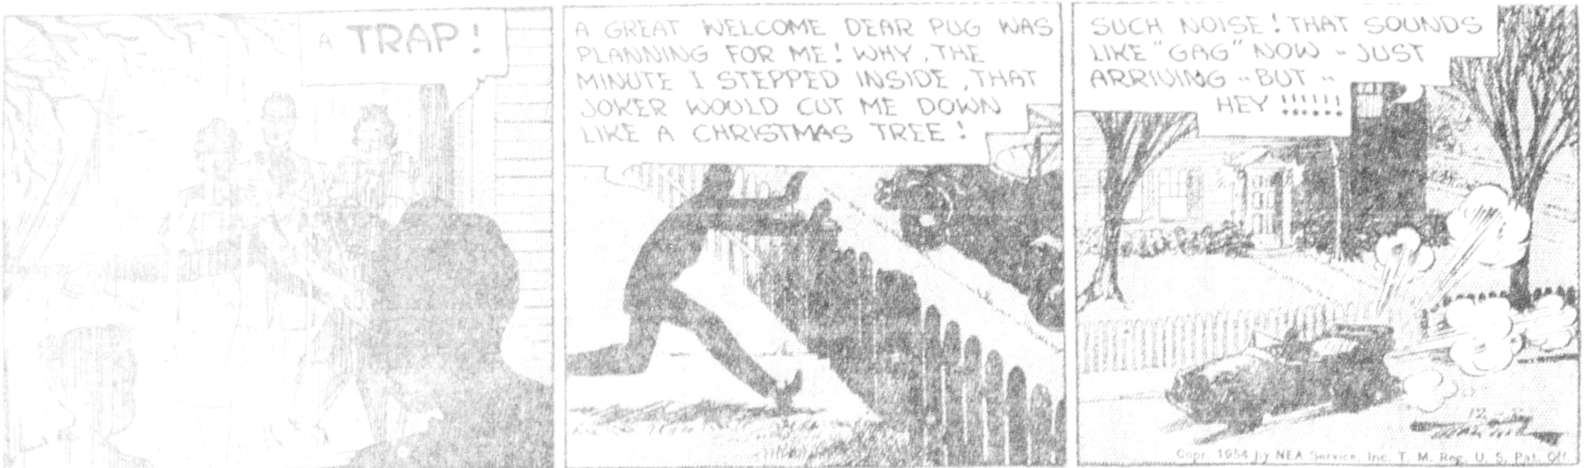 A TRAP!
A GREAT WELCOME DEAR PUG WAS
PLANNING FOR ME! WHY, THE
MINUTE I STEPPED INSIDE, THAT
JOKER WOULD CUT ME DOWN
LIKE A CHRISTMAS TREE!
SUCH NOISE! THAT SOUNDS
LIKE "GAG" NOW -- JUST
ARRIVING -- BUT --
HEY !!!!!!
Copr. 1954 by NEA Service, Inc. T. M. Reg. U. S. Pat. Off.